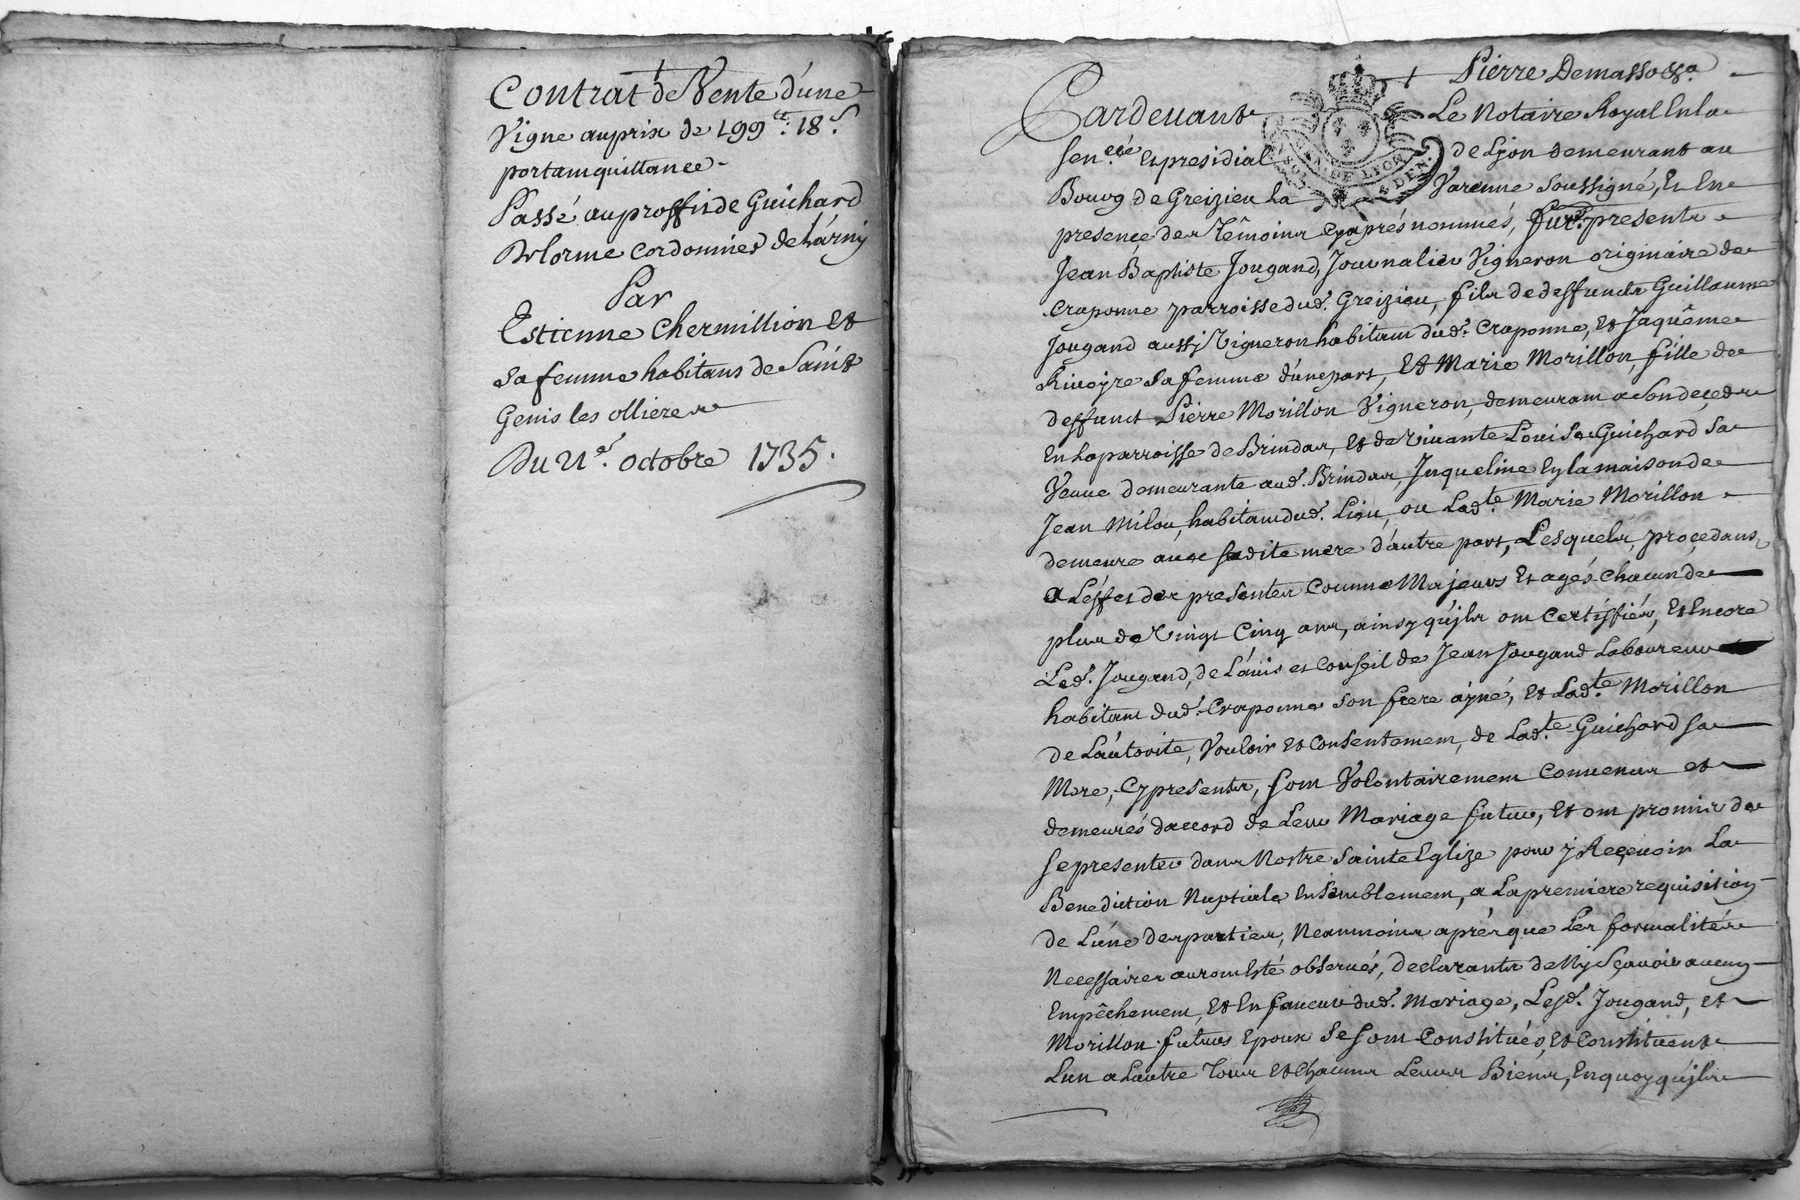 Contrat de Vente d'une
Vigne au prix de 199tt: 18s
portant quittance
Passé au proffit de Guichard
Delorme cordonnier de Lárny
Par
Estienne Chermillion Et
Sa femme habitans de Saint
Genis les ollieres
Du 21e. octobre 1735.
Pierre Demasso
Pardevant Le Notaire Royal En la
Senécée Et presidial de Lyon demeurant au
Bourg de Greizieu La Varenne Soussigné, Et En
presence des Témoins Cyaprés nommés, furt. presents
Jean Baptiste Jougand, Journalier Vigneron originaire de
Craponne parroisse dud. Greizieu, fils de deffuncts Guillaume
Jougand aussy Vigneron habitant dud. Craponne, Et Jaquême
Rivoyre Sa femme d'une part, Et Marie Morillon, fille de
deffunct Pierre Morillon Vigneron, demeurant a Son deçeds
En La parroisse de Brindas, Et de Vivante Louise Guichard Sa
Veuve demeurante aud. Brindas, En la maison de
Jean Milou, habitant dud. Lieu, ou Lad.te Marie Morillon
demeure avec Sadite mere d'autre part, Lesquels, proçedans
a L'éffet des presentes Comme Majeurs Et agés Chacun de
plus de Vingt Cinq ans, ainsy qu'jls ont Certiffiés, Et Encore
Led. Jougand, de L'avis et Conseil de Jean Jougand Laboureur
habitant dud. Craponne Son frere ayné, Et Lad.te Morillon
de L'autorité, Vouloir Et Consentement, de Lad.te Guichard Sa
Mere, Cy presents, Sont Volontairement Convenus et
demeurés d'accord de Leur Mariage futur, Et ont promis de
Se presenter dans Nostre Sainte Eglize pour y Reçevoir La
Benediction Nuptiale Ensemblement, a La premiere requisition
de L'une des parties, Neanmoins aprés que Les formalités
Necessaires auront Esté observés, declarants de Ny Sçavoir aucun
Empêchement, Et En faveur dud. Mariage, Lesd. Jougand, Et
Morillon futurs Epoux Se Sont Constitués, Et Constituent
L'un a L'autre Tous Et Chacuns Leurs Biens, En quoy qu'jls